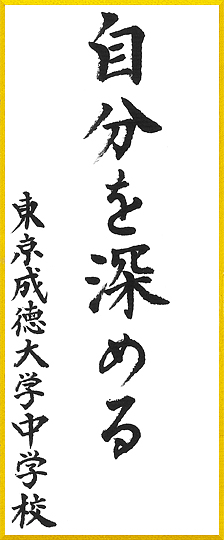 自分を深める
東京成徳大学中学校